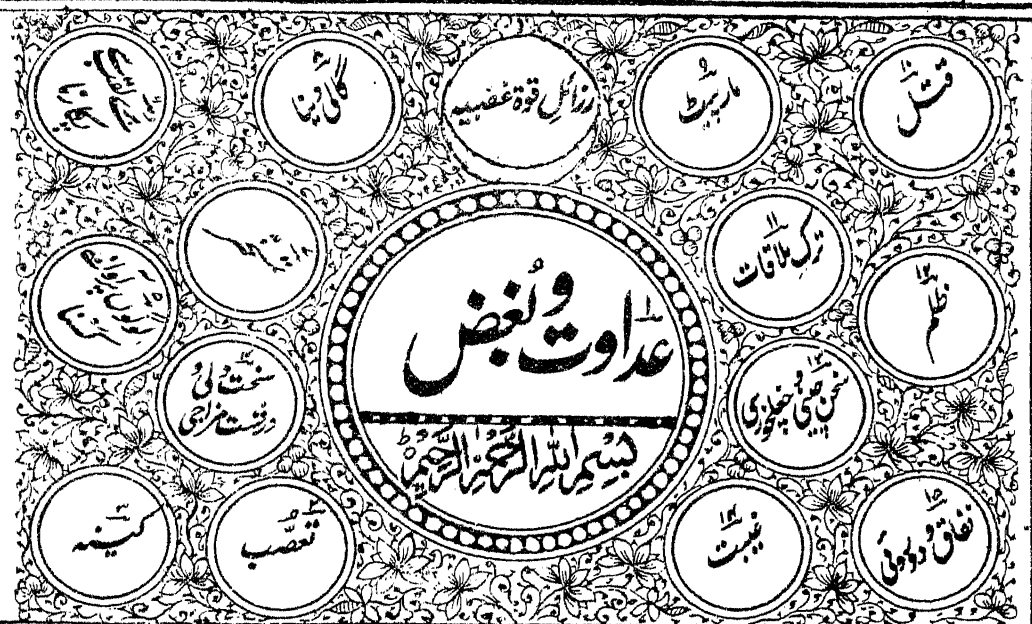 قتل
۱۰
مارپیٹ
۹
رزائلِ قوۃ غضبیہ
گالی دینا
ترکِ ملاقات
۱۱
ظلم
۱۲
عداوت و بُغض
۱
بِسْمِ اللّٰهِ الرَّحْمٰنِ الرَّحِيْمِ
سخن چینی و چغلخوری
۱۳
سخت دلی و
درشت مزاجی
نفاق و دوروئی
۱۵
غیبت
۱۴
تعصّب
کینہ